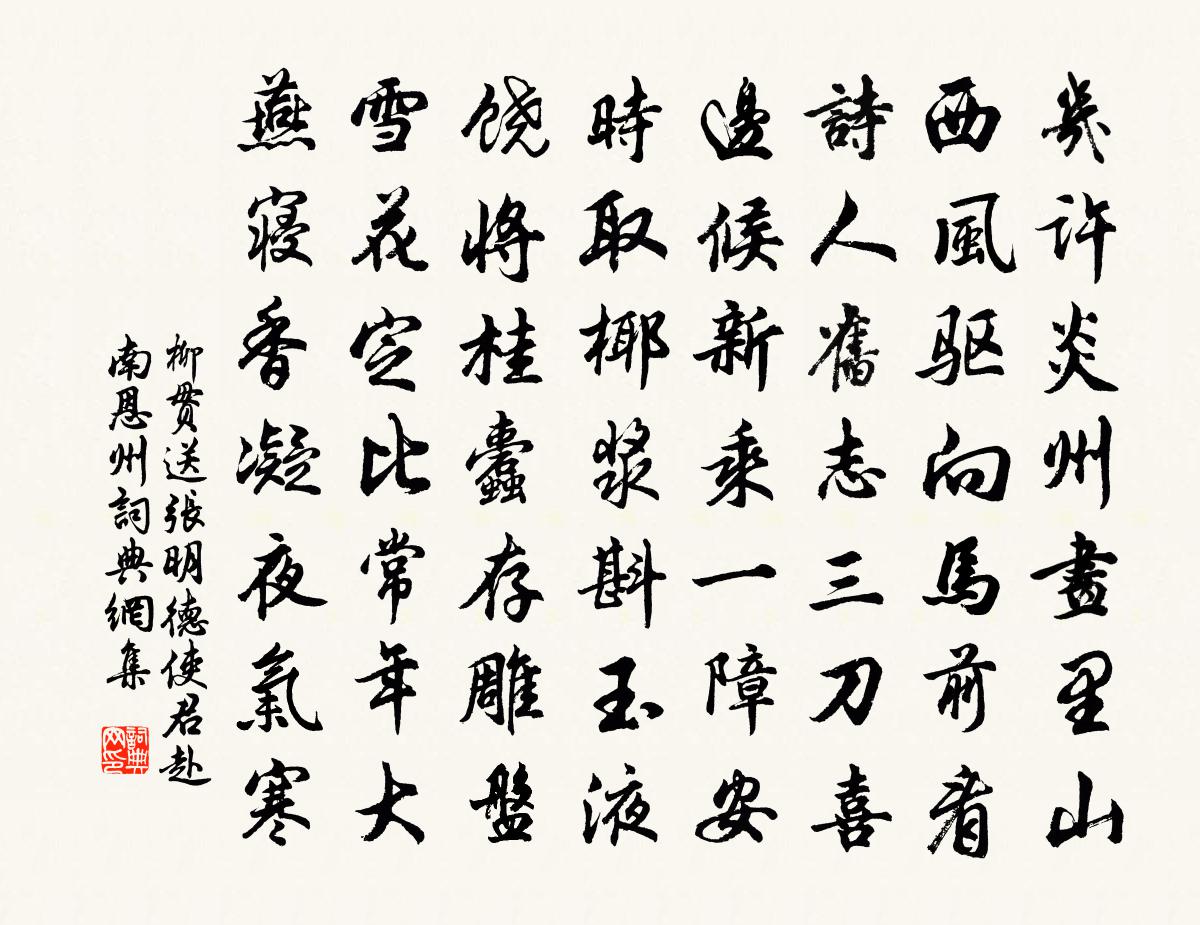 幾許炎州畫里山
西風驱向馬前看
詩人舊志三刀喜
邊候新乘一障安
時取椰漿斟玉液
饶將桂蠹存雕盤
雪花定比常年大
燕寝香凝夜氣寒
柳貫送張明德使君赴
南恩州詞典網集
詞典網印